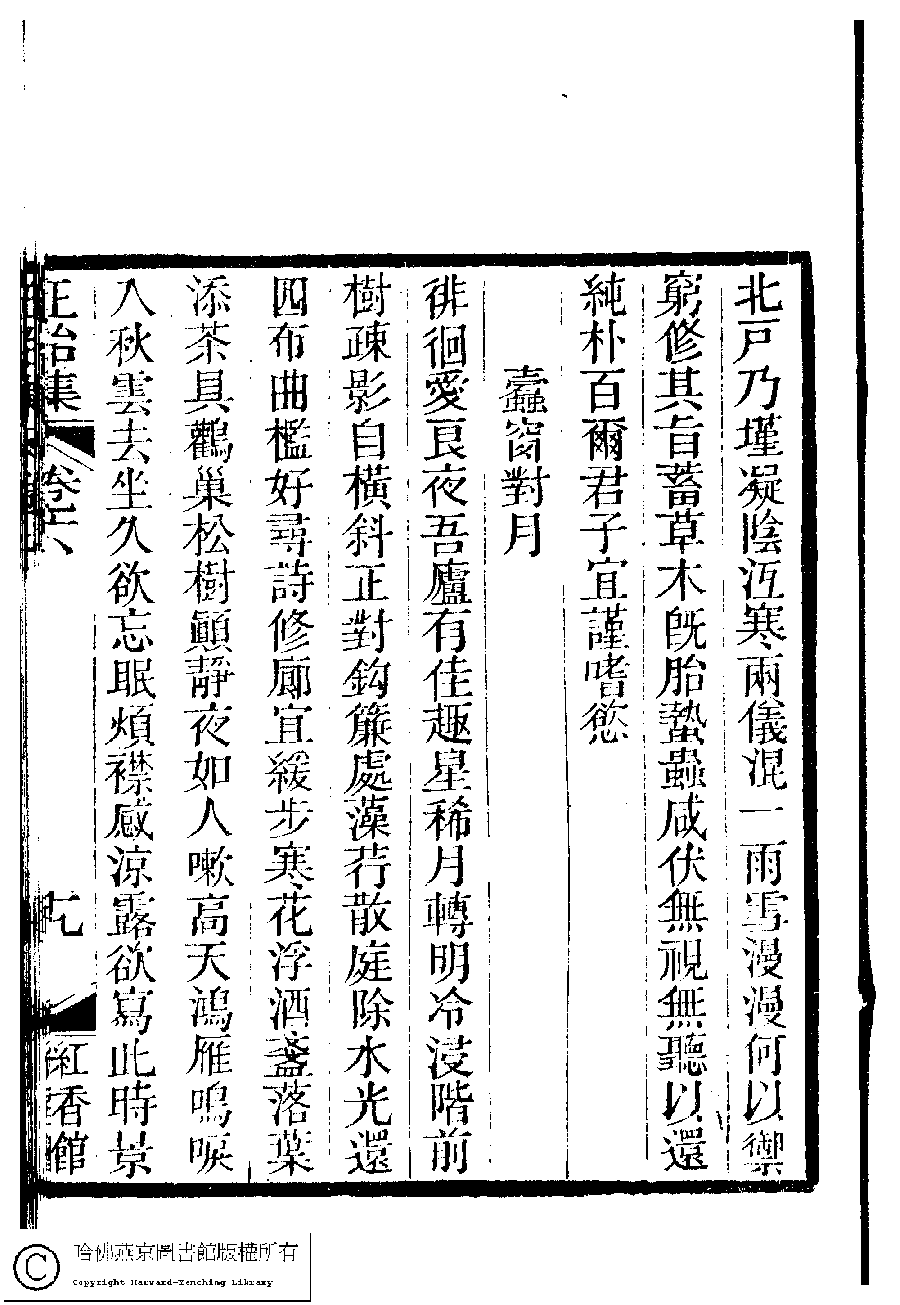 北戸乃墐凝陰沍寒兩儀混一雨雪漫漫何以禦
窮修其旨蓄草木旣胎蟄蟲咸伏無視無聽以還
純朴百爾君子宜謹嗜慾
蠹窗對月
徘徊愛良夜吾廬有佳趣星稀月轉明冷浸階前
樹疎影自橫斜正對鈎簾處藻荇散庭除水光還
四布曲檻好尋詩修廊宜緩步寒花浮酒盞落葉
添茶具鸛巢松樹顚靜夜如人嗽高天鴻雁鳴唳
入秋雲去坐久欲忘眠煩襟感涼露欲寫此時景
正始集
卷六
十九
紅香館
哈佛燕京圖書館版權所有
Copyright Harvard-Yenching Library